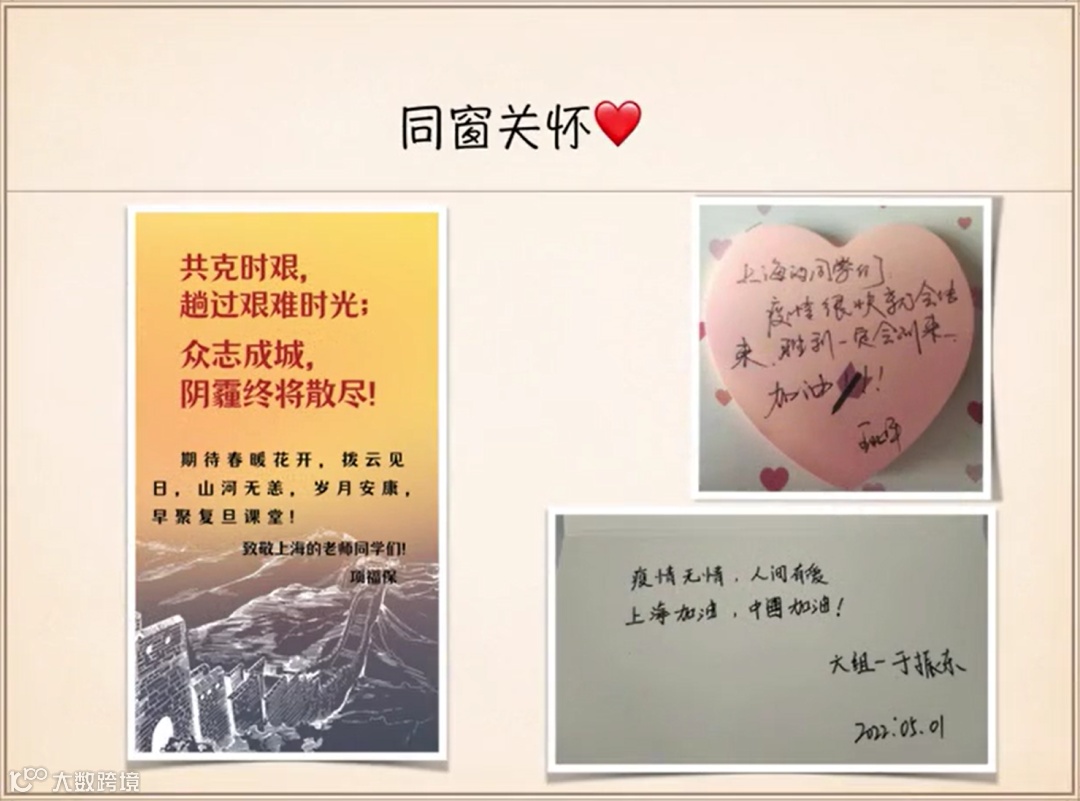 同窗关怀❤️
共克时艰，
趟过艰难时光；
众志成城，
阴霾终将散尽！
期待春暖花开，拨云见
日，山河无恙，岁月安康，
早聚复旦课堂！
致敬上海的老师同学们!
项福保
上海的同学们
疫情很快就会结
束、胜利一定会到来
加油！
疫情无情，人间有爱
上海加油，中國加油！
六组—于振东
2022.05.01
大数跨境